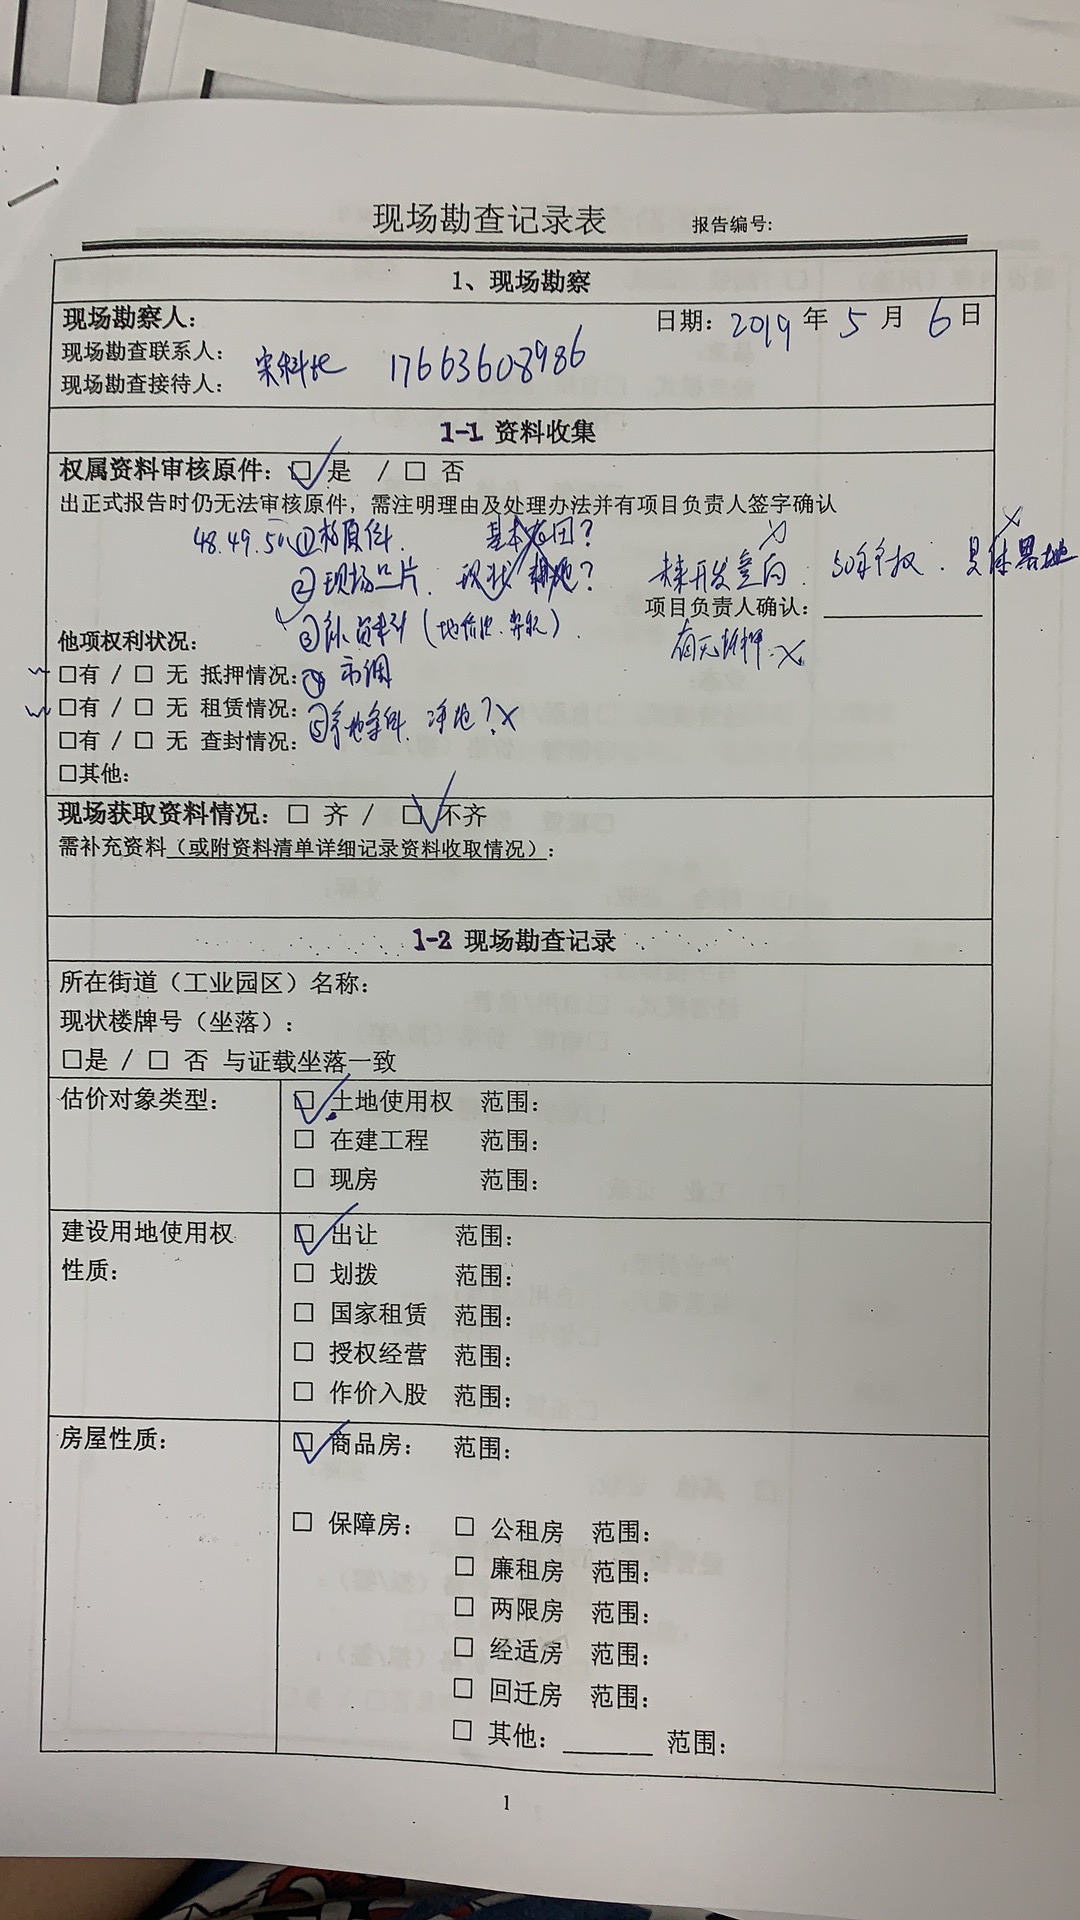 现场勘查记录表 报告编号:
1、现场勘察
现场勘察人: 日期: 2019 年 5 月 6 日
现场勘查联系人:
17663608986
现场勘查接待人:
1-1 资料收集
权属资料审核原件: ☑ 是 / □ 否
出正式报告时仍无法审核原件，需注明理由及处理办法并有项目负责人签字确认
48.49.50 ①核原件. 基本农田?
②现场照片. 现状 耕地?
项目负责人确认:
③补资料
他项权利状况:
有无抵押.
□有 / □ 无 抵押情况: ④市调
□有 / □ 无 租赁情况: ⑤ 净地?
□有 / □ 无 查封情况:
□其他:
现场获取资料情况: □ 齐 / ☑ 不齐
需补充资料(或附资料清单详细记录资料收取情况):
1-2 现场勘查记录
所在街道（工业园区）名称:
现状楼牌号（坐落）:
□是 / □ 否 与证载坐落一致
估价对象类型: ☑ 土地使用权 范围:
□ 在建工程 范围:
□ 现房 范围:
建设用地使用权 ☑ 出让 范围:
性质: □ 划拨 范围:
□ 国家租赁 范围:
□ 授权经营 范围:
□ 作价入股 范围:
房屋性质: ☑ 商品房: 范围:
□ 保障房: □ 公租房 范围:
□ 廉租房 范围:
□ 两限房 范围:
□ 经适房 范围:
□ 回迁房 范围:
□ 其他: ______ 范围:
1